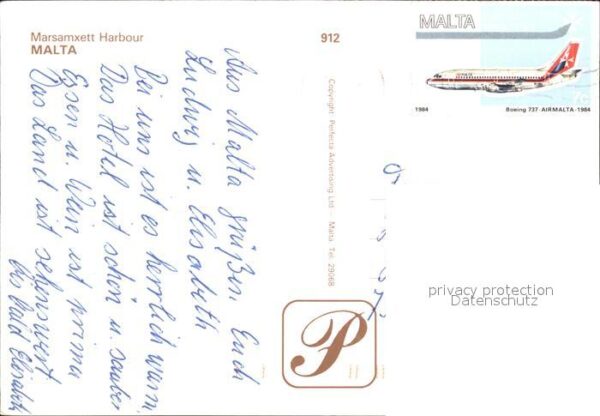 Marsamxett Harbour
MALTA
912
MALTA
7c
1984
Boeing 737 · AIRMALTA · 1984
Aus Malta grüßen Euch
Ludwig u. Elisabeth
Bei uns ist es herrlich warm
Das Hotel ist schön u. sauber
Essen u. Wein ist prima
Das Land ist sehenswert
bis bald Elisabeth
Copyright: Perfecta Advertising Ltd – Malta. Tel. 29068
P
privacy protection
Datenschutz